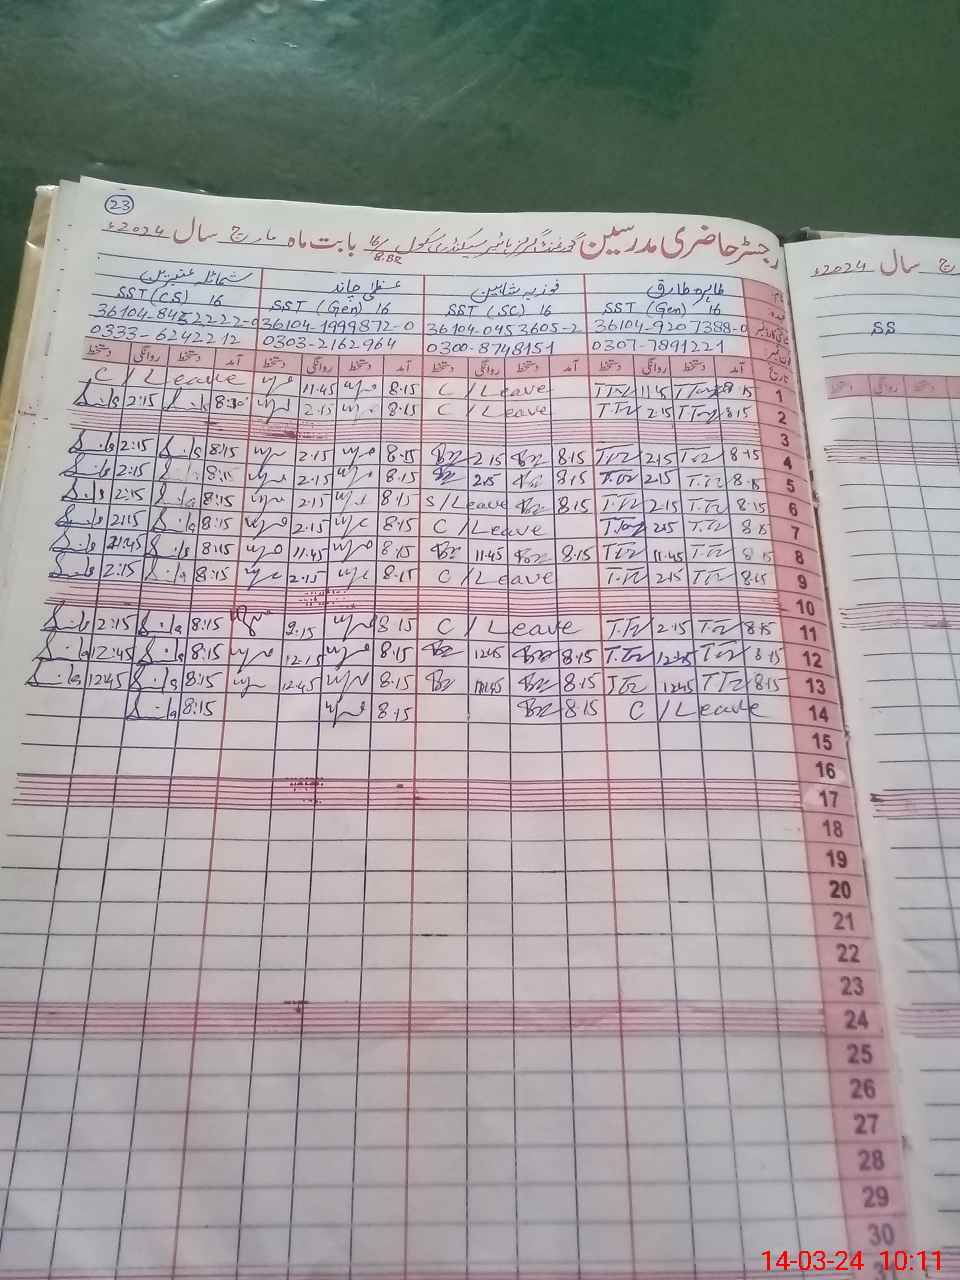 23
رجسٹر حاضری مدرسین گورنمنٹ گرلز ہائیر سیکنڈری سکول 16/8.BR بابت ماہ مارچ سال 2024ء
طاہرہ طارق فوزیہ شاہین عظمیٰ چاند شمائلہ عنبرین
SST (Gen) 16 SST (SC) 16 SST (Gen) 16 SST (CS) 16
36104-9207388-0 36104-0453605-2 36104-1999872-0
0307-7891221 0300-8748151 0303-2162964 0333-6242212
تاریخ آمد دستخط روانگی دستخط آمد دستخط روانگی دستخط آمد دستخط روانگی دستخط آمد دستخط روانگی دستخط
1 8.15 11.45 C/Leave 8.15 11.45 C/Leave
2 8.15 2.15 C/Leave 8.15 2.15 8:30 2:15
3
4 8.15 2.15 8.15 2.15 8.15 2.15 8:15 2:15
5 8.15 2.15 8.15 2.15 8.15 2.15 8:15 2:15
6 8.15 2.15 8.15 S/Leave 8.15 2.15 8:15 2:15
7 8.15 2.15 C/Leave 8.15 2.15 8:15 2:15
8 8.15 11.45 8.15 11.45 8.15 11.45 8:15 11:45
9 8.15 2.15 C/Leave 8.15 2.15 8:15 2:15
10
11 8.15 2.15 C/Leave 8.15 2.15 8:15 2:15
12 8.15 12.45 8.15 12.45 8.15 8:15 12:45
13 8.15 12.45 8.15 8.15 12.45 8:15 12:45
14 C/Leave 8.15 8.15 8:15
15
16
17
18
19
20
21
22
23
24
25
26
27
28
29
30
2024ء سال
SS
14-03-24 10:11